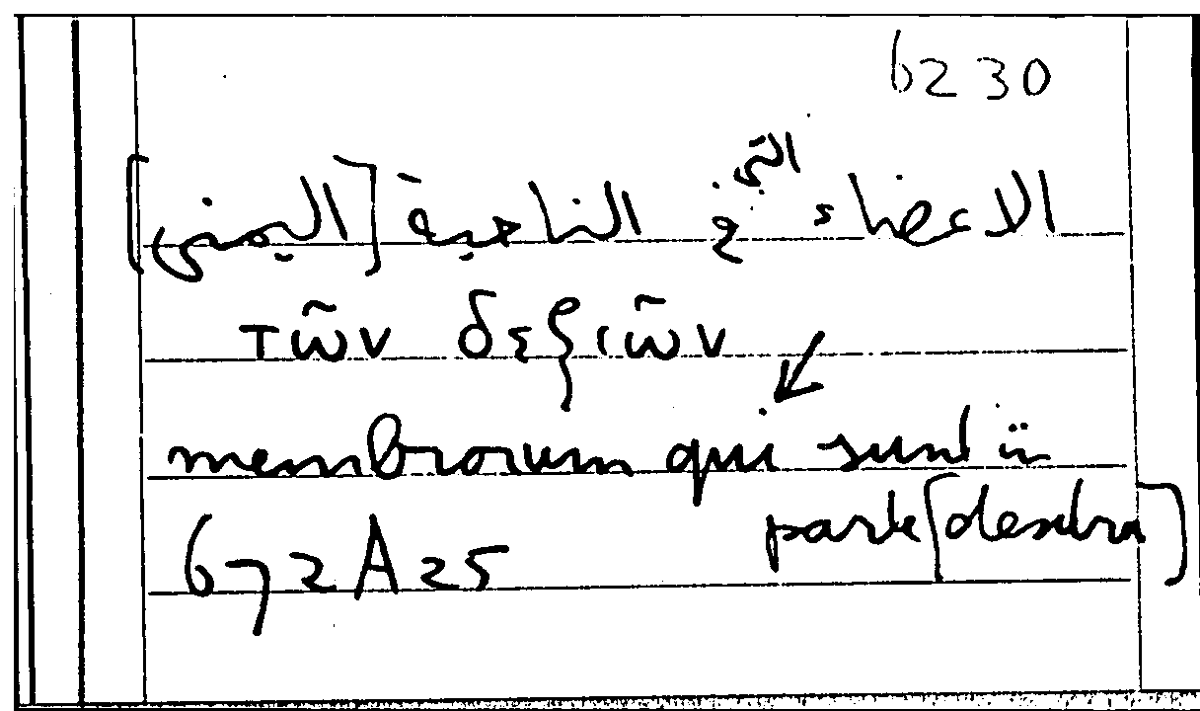 6230
الاعضاء التى فى الناحية [اليمنى]
τῶν δεξιῶν
membrorum qui sunt in
parte [dextra]
672A25